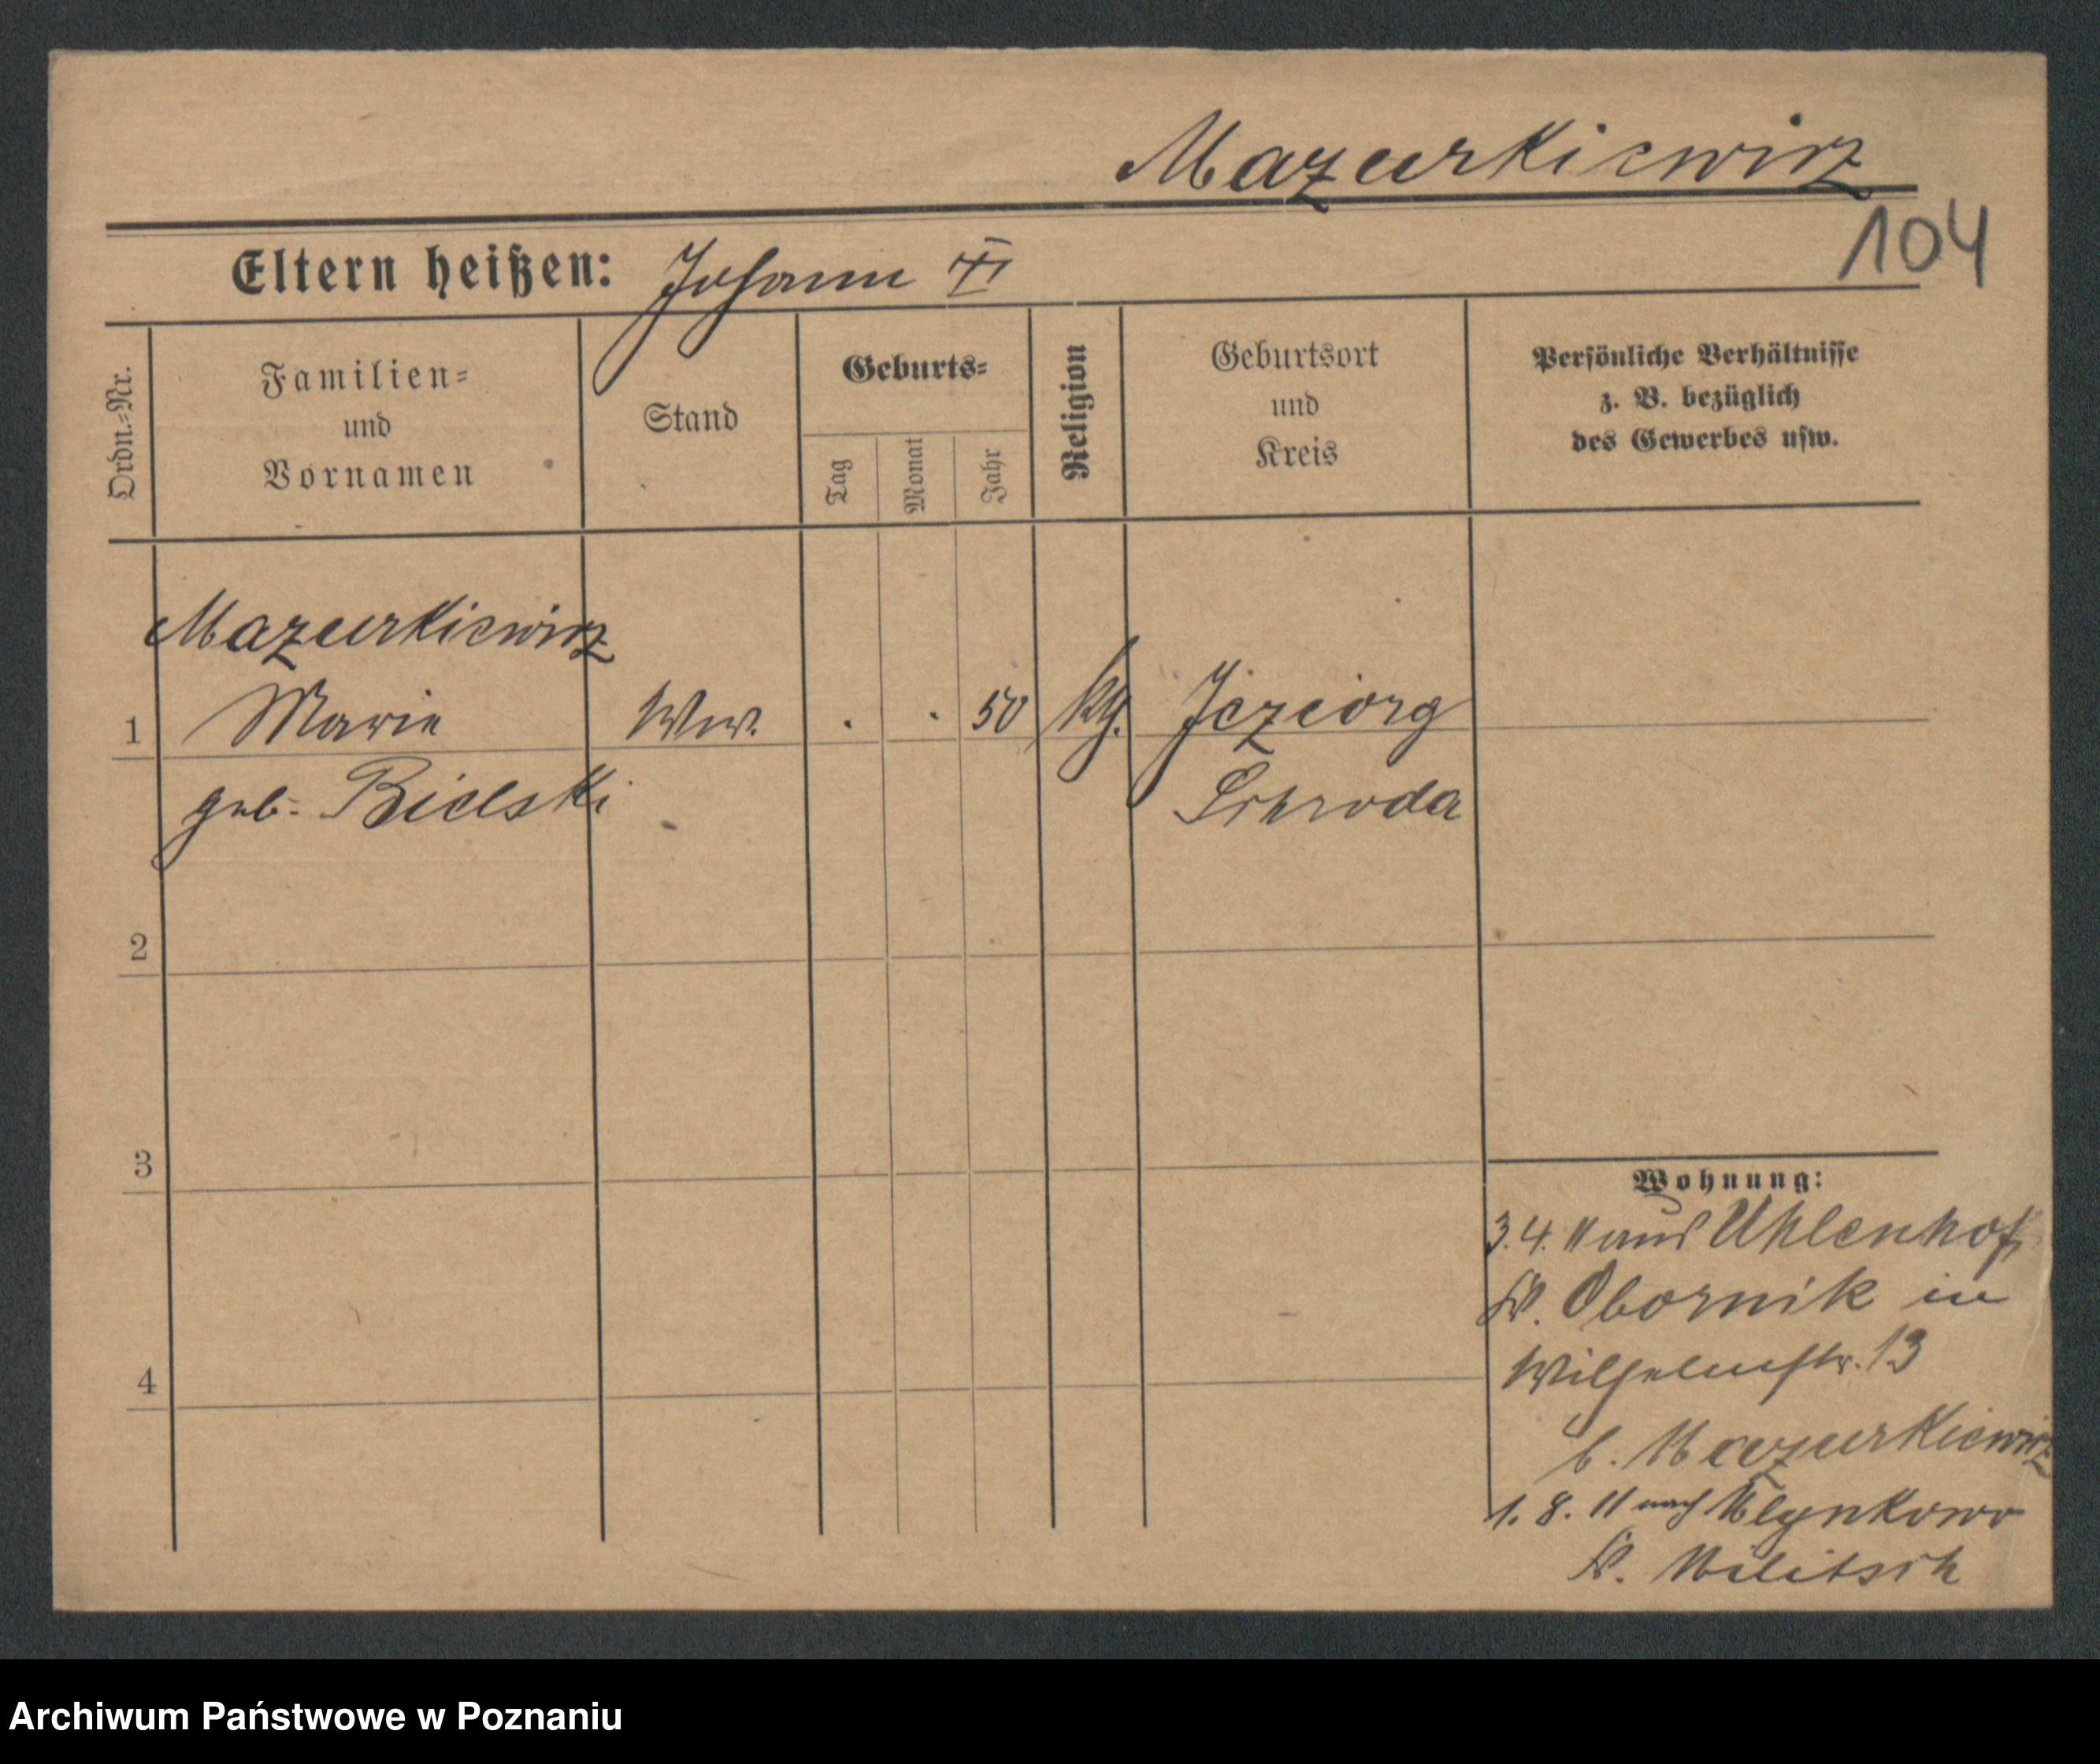 Mazurkiewicz
104
Eltern heißen: Johann
Ordn.-Nr.
Familien-
und
Vornamen
Stand
Geburts-
Tag
Monat
Jahr
Religion
Geburtsort
und
Kreis
Persönliche Verhältnisse
z. B. bezüglich
des Gewerbes usw.
Mazurkiewicz
1 Marie Ww. . . 50 kth. Jeziorg
geb. Bielski Schroda
2
3
4
Wohnung:
3.4.11 aus Uhlenhof
Kr. Obornik in
Wilhelmstr. 13
b. Mazurkiewicz
1. 8. 11 nach Mlynkowo
Kr. Militsch
Archiwum Państwowe w Poznaniu